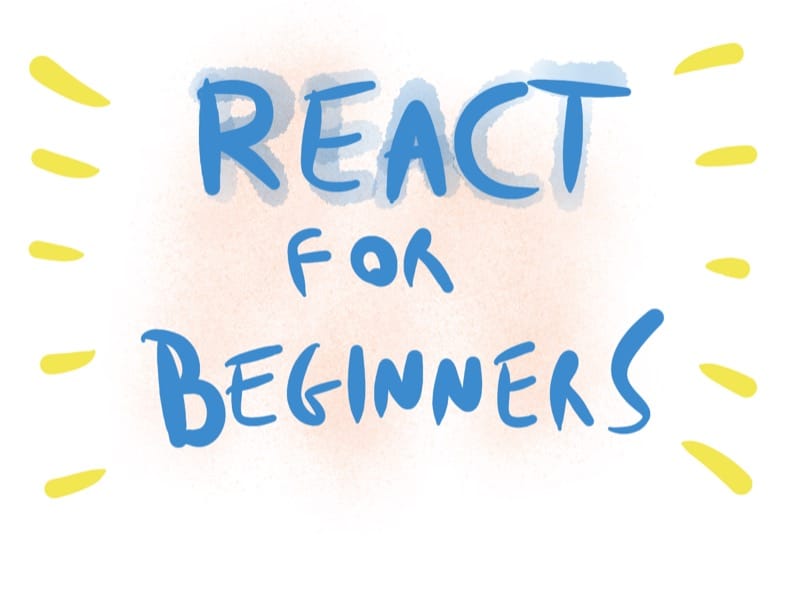 REACT
FOR
BEGINNERS